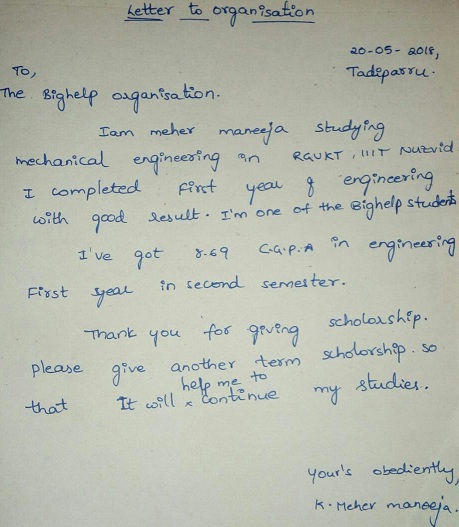 Letter to organisation
20-05-2018,
Tadeparru.
To,
The Bighelp organisation.
Iam meher maneeja studying
mechanical engineering in RGUKT, IIIT Nuzvid
I completed first year of engineering
with good result. I'm one of the Bighelp students
I've got 8.69 C.G.P.A in engineering
First year in second semester.
Thank you for giving scholarship.
please give another term scholorship. so
help me to
that It will × continue my studies.
your's obediently,
K. Meher maneeja.